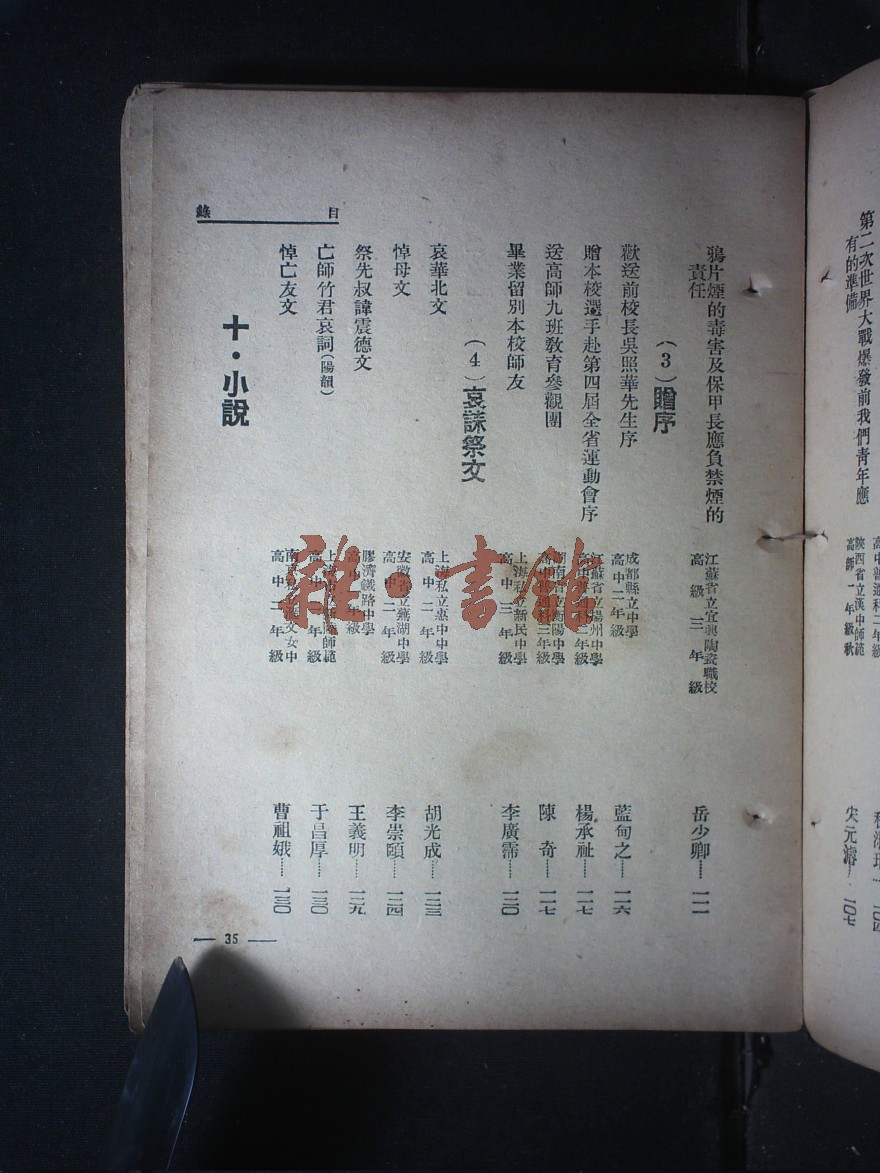 第二次世界大戰爆發前我們青年應
有的準備
陝西省立漢中師範
高師一年級秋
宋元濬
一〇七
目錄
鴉片煙的毒害及保甲長應負禁煙的
責任
江蘇省立宜興陶瓷職校
高級三年級
岳少卿……一一一
(3)贈序
歡送前校長吳照華先生序
成都縣立中學
高中二年級
藍甸之……一一六
贈本校選手赴第四屆全省運動會序
江蘇省立揚州中學
高中普通科二年級
楊承祉……一一七
送高師九班教育參觀團
陽中學
高中普通科三年級
陳奇……一一七
畢業留別本校師友
上海私立新民中學
高中三年級
李廣霈……一二〇
(4)哀誄祭文
哀華北文
上海私立惠中中學
高中二年級
胡光成……一二三
悼母文
安徽省立蕪湖中學
高中二年級
李崇頤……一二四
祭先叔諱震德文
膠濟鐵路中學
高中年級
王義明……一二九
亡師竹君哀詞(陽韻)
上海師範
高中二年級
于昌厚……一三〇
悼亡友文
南文女中
高中二年級
曹祖娥……一三〇
十·小說
— 35 —
雜·書館